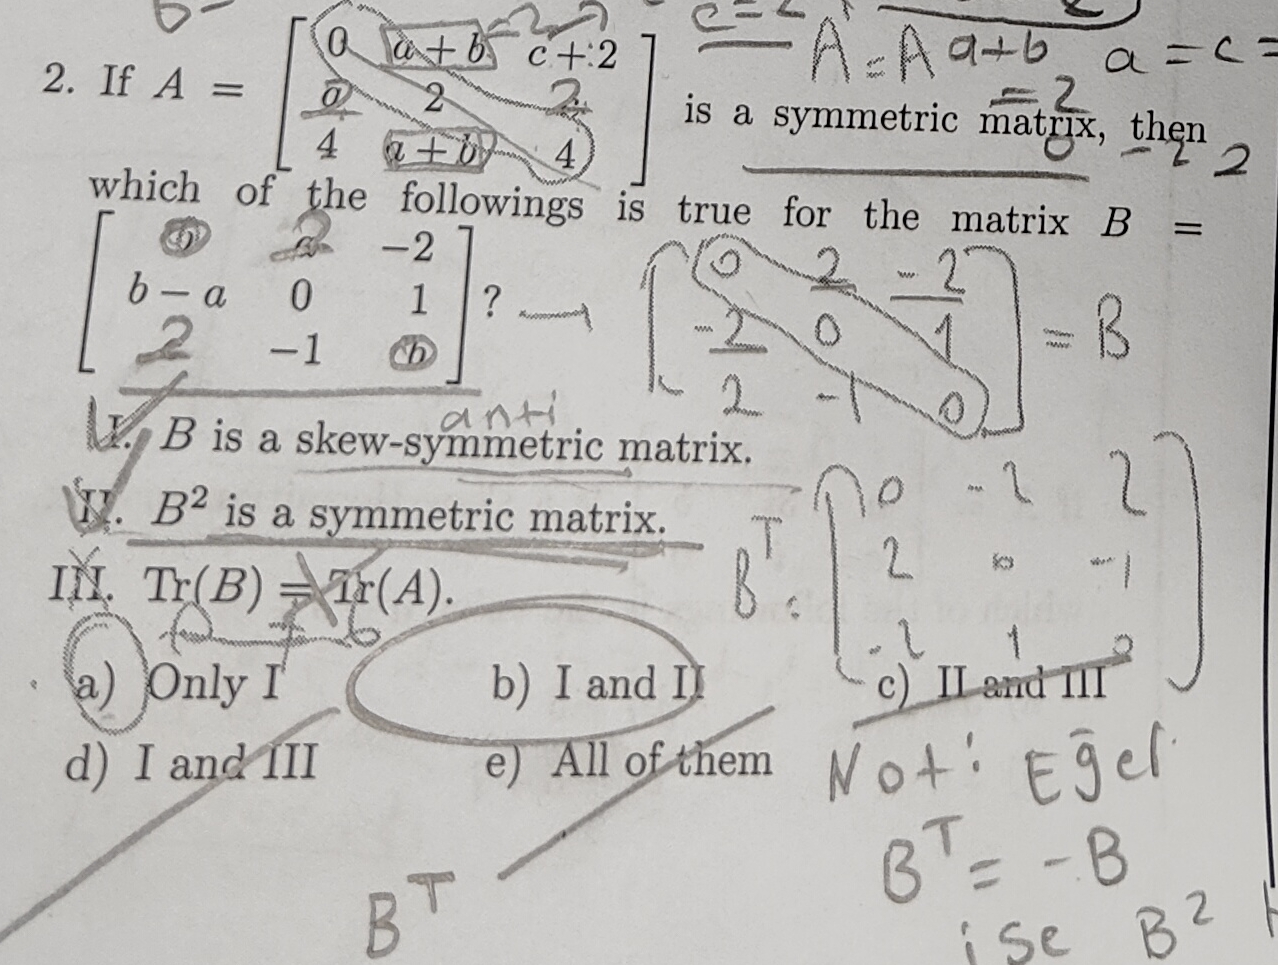 c = 2
a+b -2
A = A a+b a = c =
= 2
2. If A = [ 0 a + b c + 2
a 2 2
4 a + b 4 ] is a symmetric matrix, then
0 -2 2
which of the followings is true for the matrix B =
[ b a -2
b − a 0 1
2 −1 b ] ?
[ 0 2 -2
-2 0 1
2 -1 0 ] = B
anti
I. B is a skew-symmetric matrix.
II. B² is a symmetric matrix.
III. Tr(B) = Tr(A).
0 ≠ 6
B^T = [ 0 -2 2
2 0 -1
-2 1 0 ]
a) Only I b) I and II c) II and III
d) I and III e) All of them
Not: Eğer
B^T = -B
ise B²
B^T